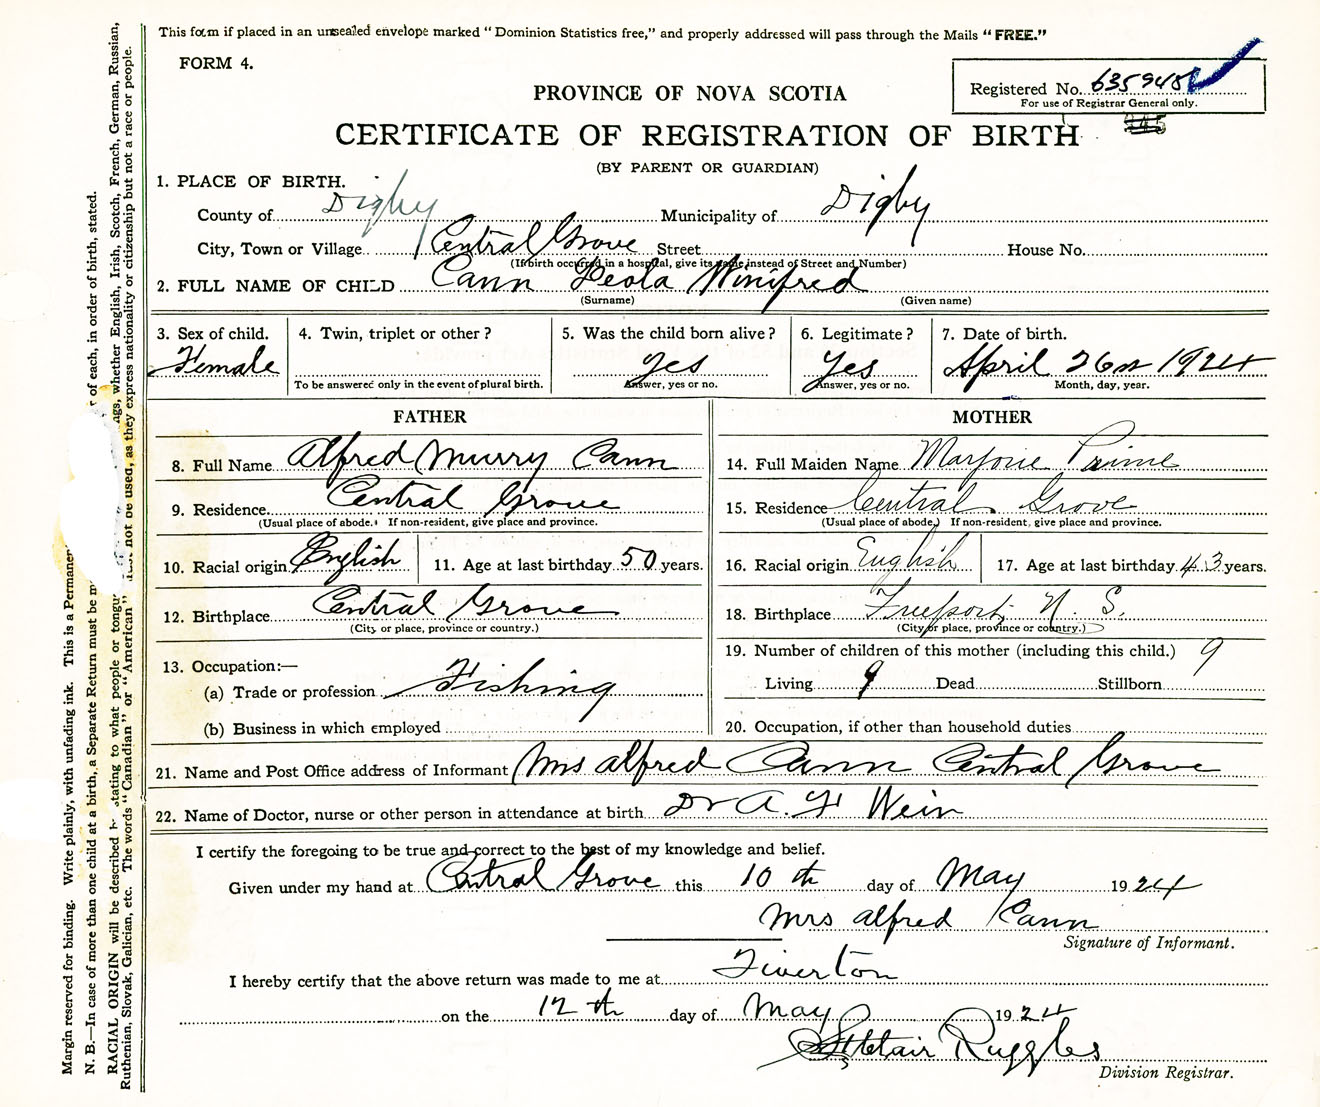 This form if placed in an unsealed envelope marked "Dominion Statistics free," and properly addressed will pass through the Mails "FREE."
FORM 4.
Registered No. 635940
For use of Registrar General only.
PROVINCE OF NOVA SCOTIA
CERTIFICATE OF REGISTRATION OF BIRTH
(BY PARENT OR GUARDIAN)
1. PLACE OF BIRTH.
County of Digby Municipality of Digby
City, Town or Village Central Grove Street House No.
(If birth occurred in a hospital, give its name instead of Street and Number)
2. FULL NAME OF CHILD Cann Leola Winifred
(Surname) (Given name)
3. Sex of child. 4. Twin, triplet or other? 5. Was the child born alive? 6. Legitimate? 7. Date of birth.
Female Yes Yes April 26 1924
To be answered only in the event of plural birth. Answer, yes or no. Answer, yes or no. Month, day, year.
FATHER
8. Full Name Alfred Murry Cann
9. Residence Central Grove
(Usual place of abode. If non-resident, give place and province.
10. Racial origin English 11. Age at last birthday 50 years.
12. Birthplace Central Grove
(City or place, province or country.)
13. Occupation:—
(a) Trade or profession Fishing
(b) Business in which employed
MOTHER
14. Full Maiden Name Marjorie Prime
15. Residence Central Grove
(Usual place of abode.) If non-resident, give place and province.
16. Racial origin English 17. Age at last birthday 43 years.
18. Birthplace Freeport, N. S.
(City or place, province or country.)
19. Number of children of this mother (including this child.) 9
Living 9 Dead Stillborn
20. Occupation, if other than household duties
21. Name and Post Office address of Informant Mrs Alfred Cann Central Grove
22. Name of Doctor, nurse or other person in attendance at birth Dr A. F Weir
I certify the foregoing to be true and correct to the best of my knowledge and belief.
Given under my hand at Central Grove this 10 th day of May 1924
Mrs Alfred Cann
Signature of Informant.
I hereby certify that the above return was made to me at Tiverton
on the 12 th day of May 1924
Ruggles
Division Registrar.
Margin reserved for binding. Write plainly, with unfading ink. This is a Permanen
N. B.—In case of more than one child at a birth, a Separate Return must be m of each, in order of birth, stated.
RACIAL ORIGIN will be described stating to what people or tongu whether English, Irish, Scotch, French, German, Russian,
Ruthenian, Slovak, Galician, etc. The words "Canadian" or "American" not be used, as they express nationality or citizenship but not a race or people.